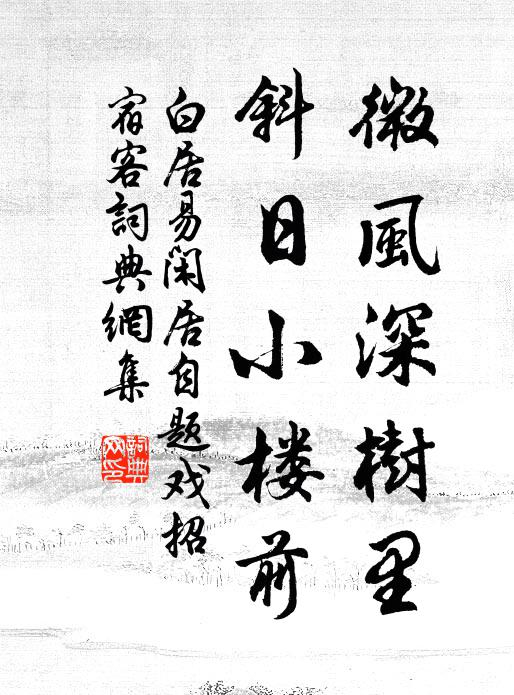 微風深樹里
斜日小楼前
白居易闲居自题戏招
宿客詞典網集
詞典网印